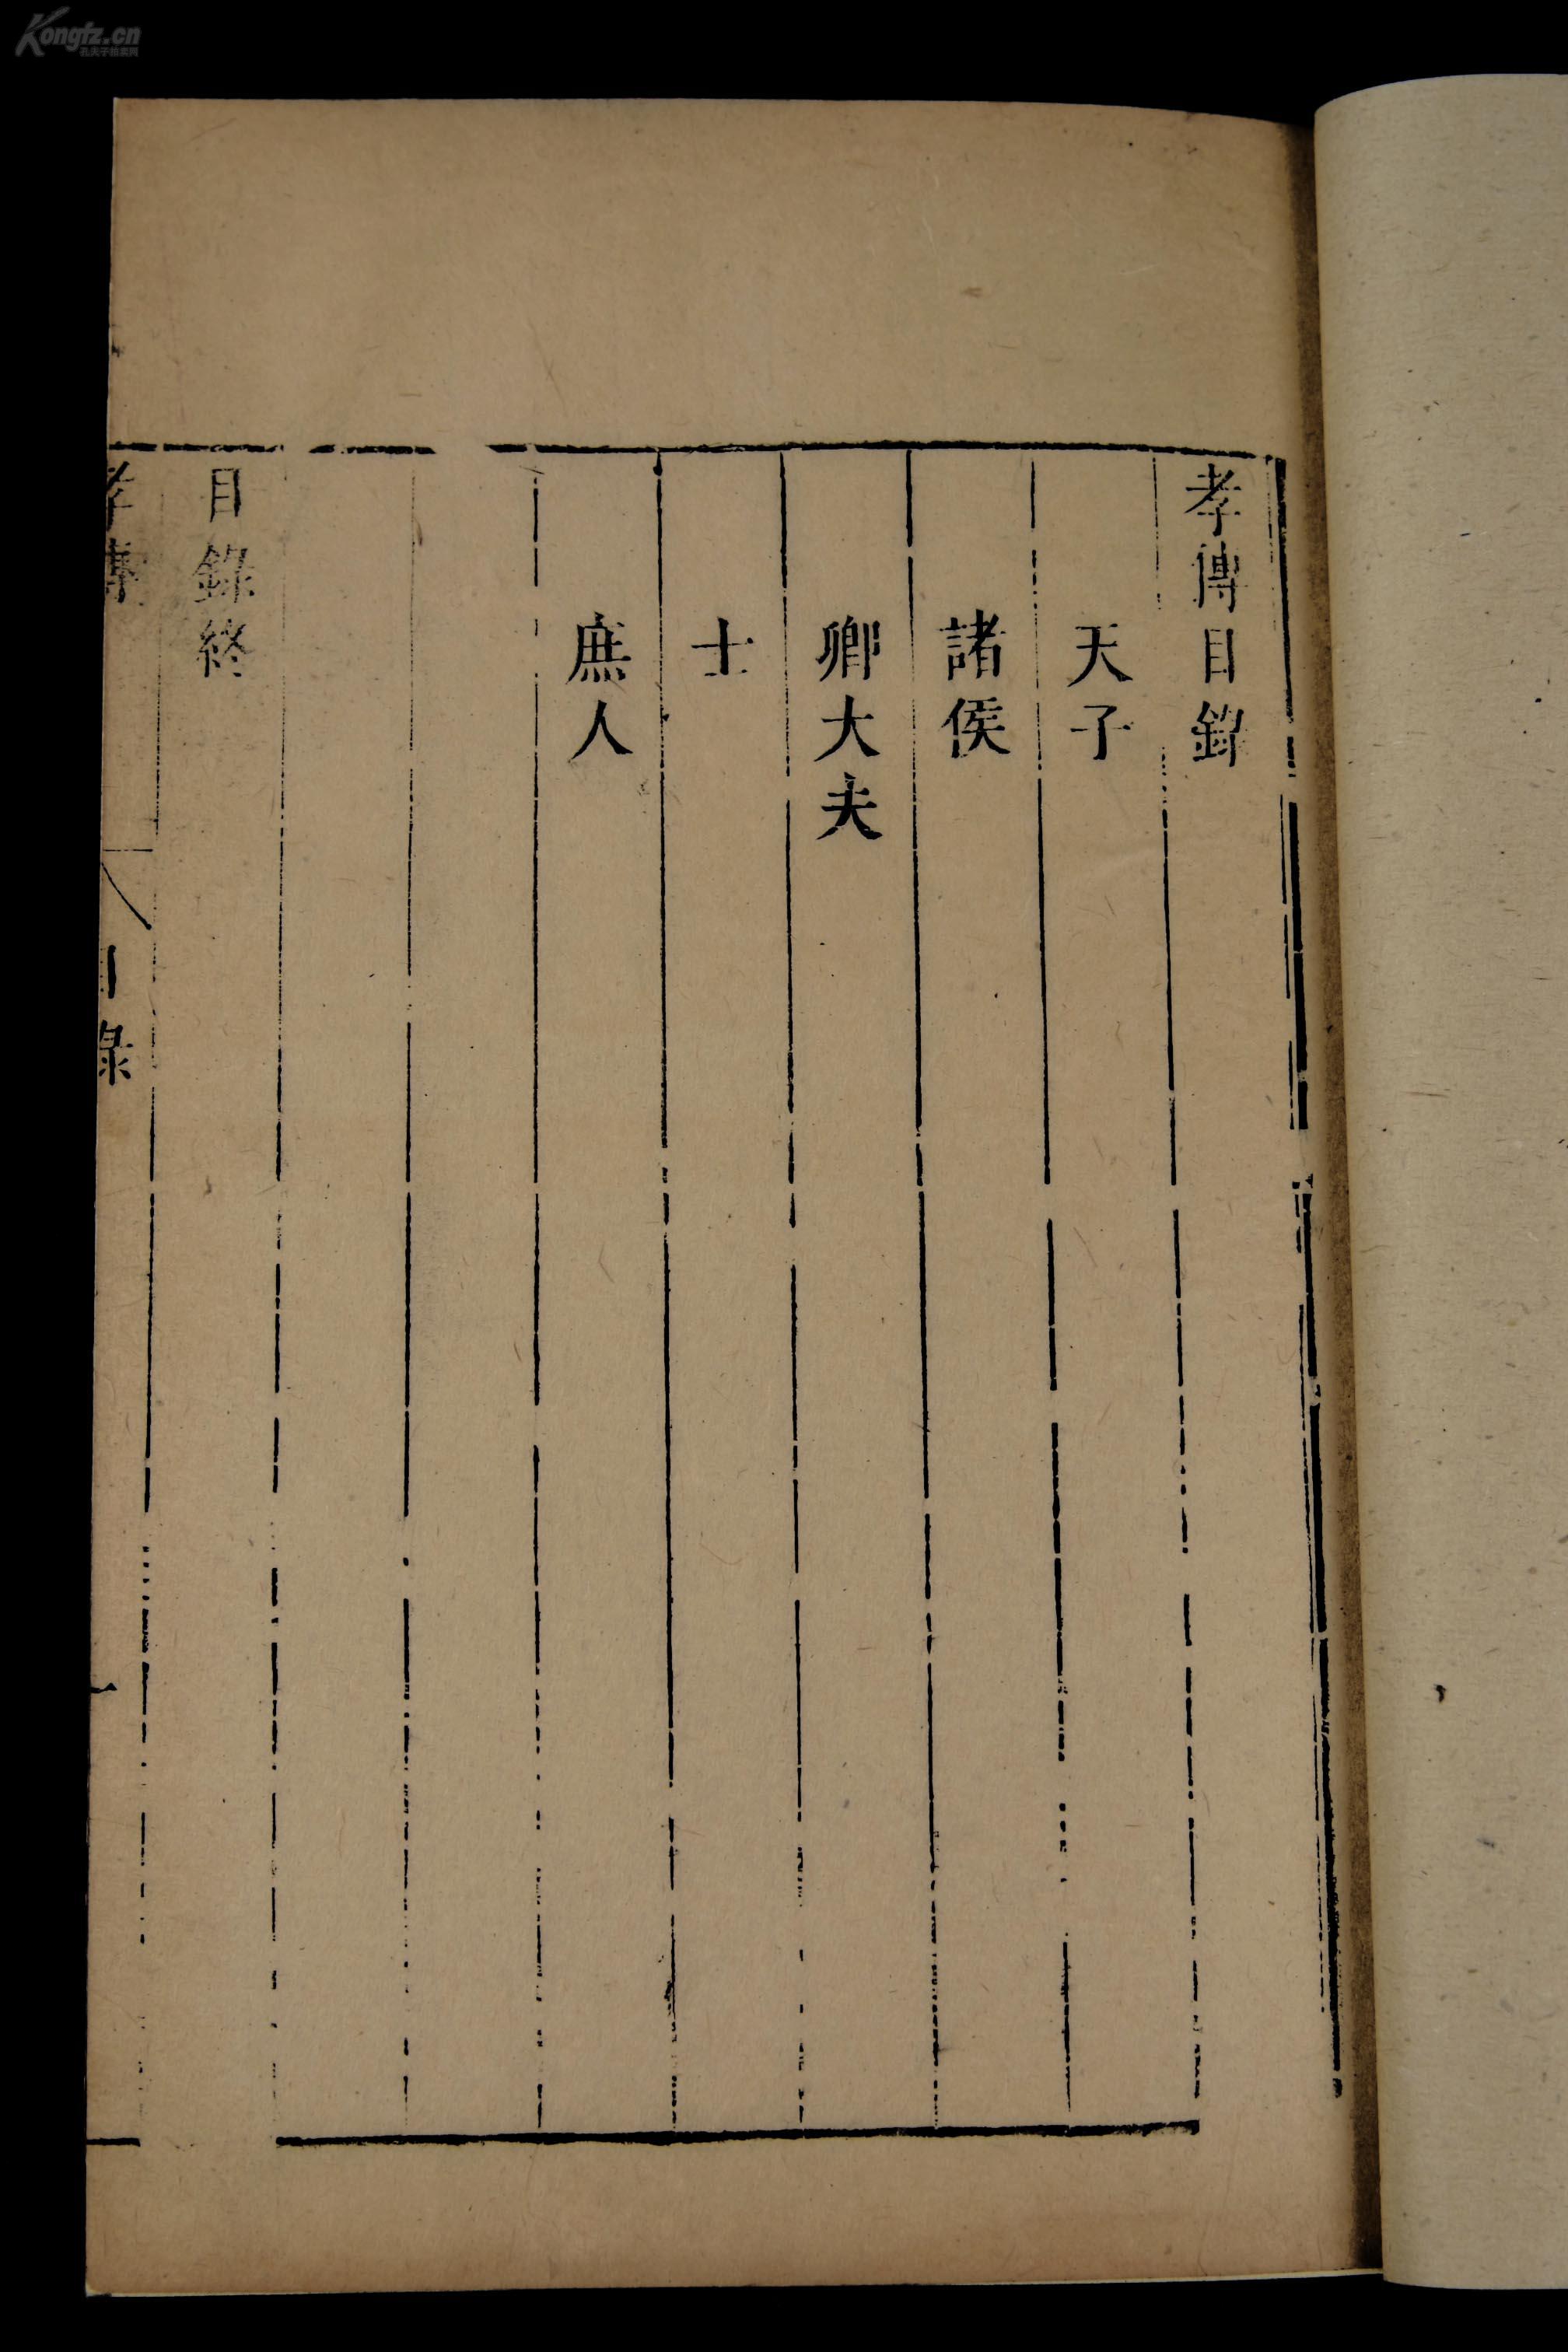 孝傳目錄
天子
諸侯
卿大夫
士
庶人
目錄終
孝傳
目錄
一
Kongfz.cn
孔夫子拍卖网